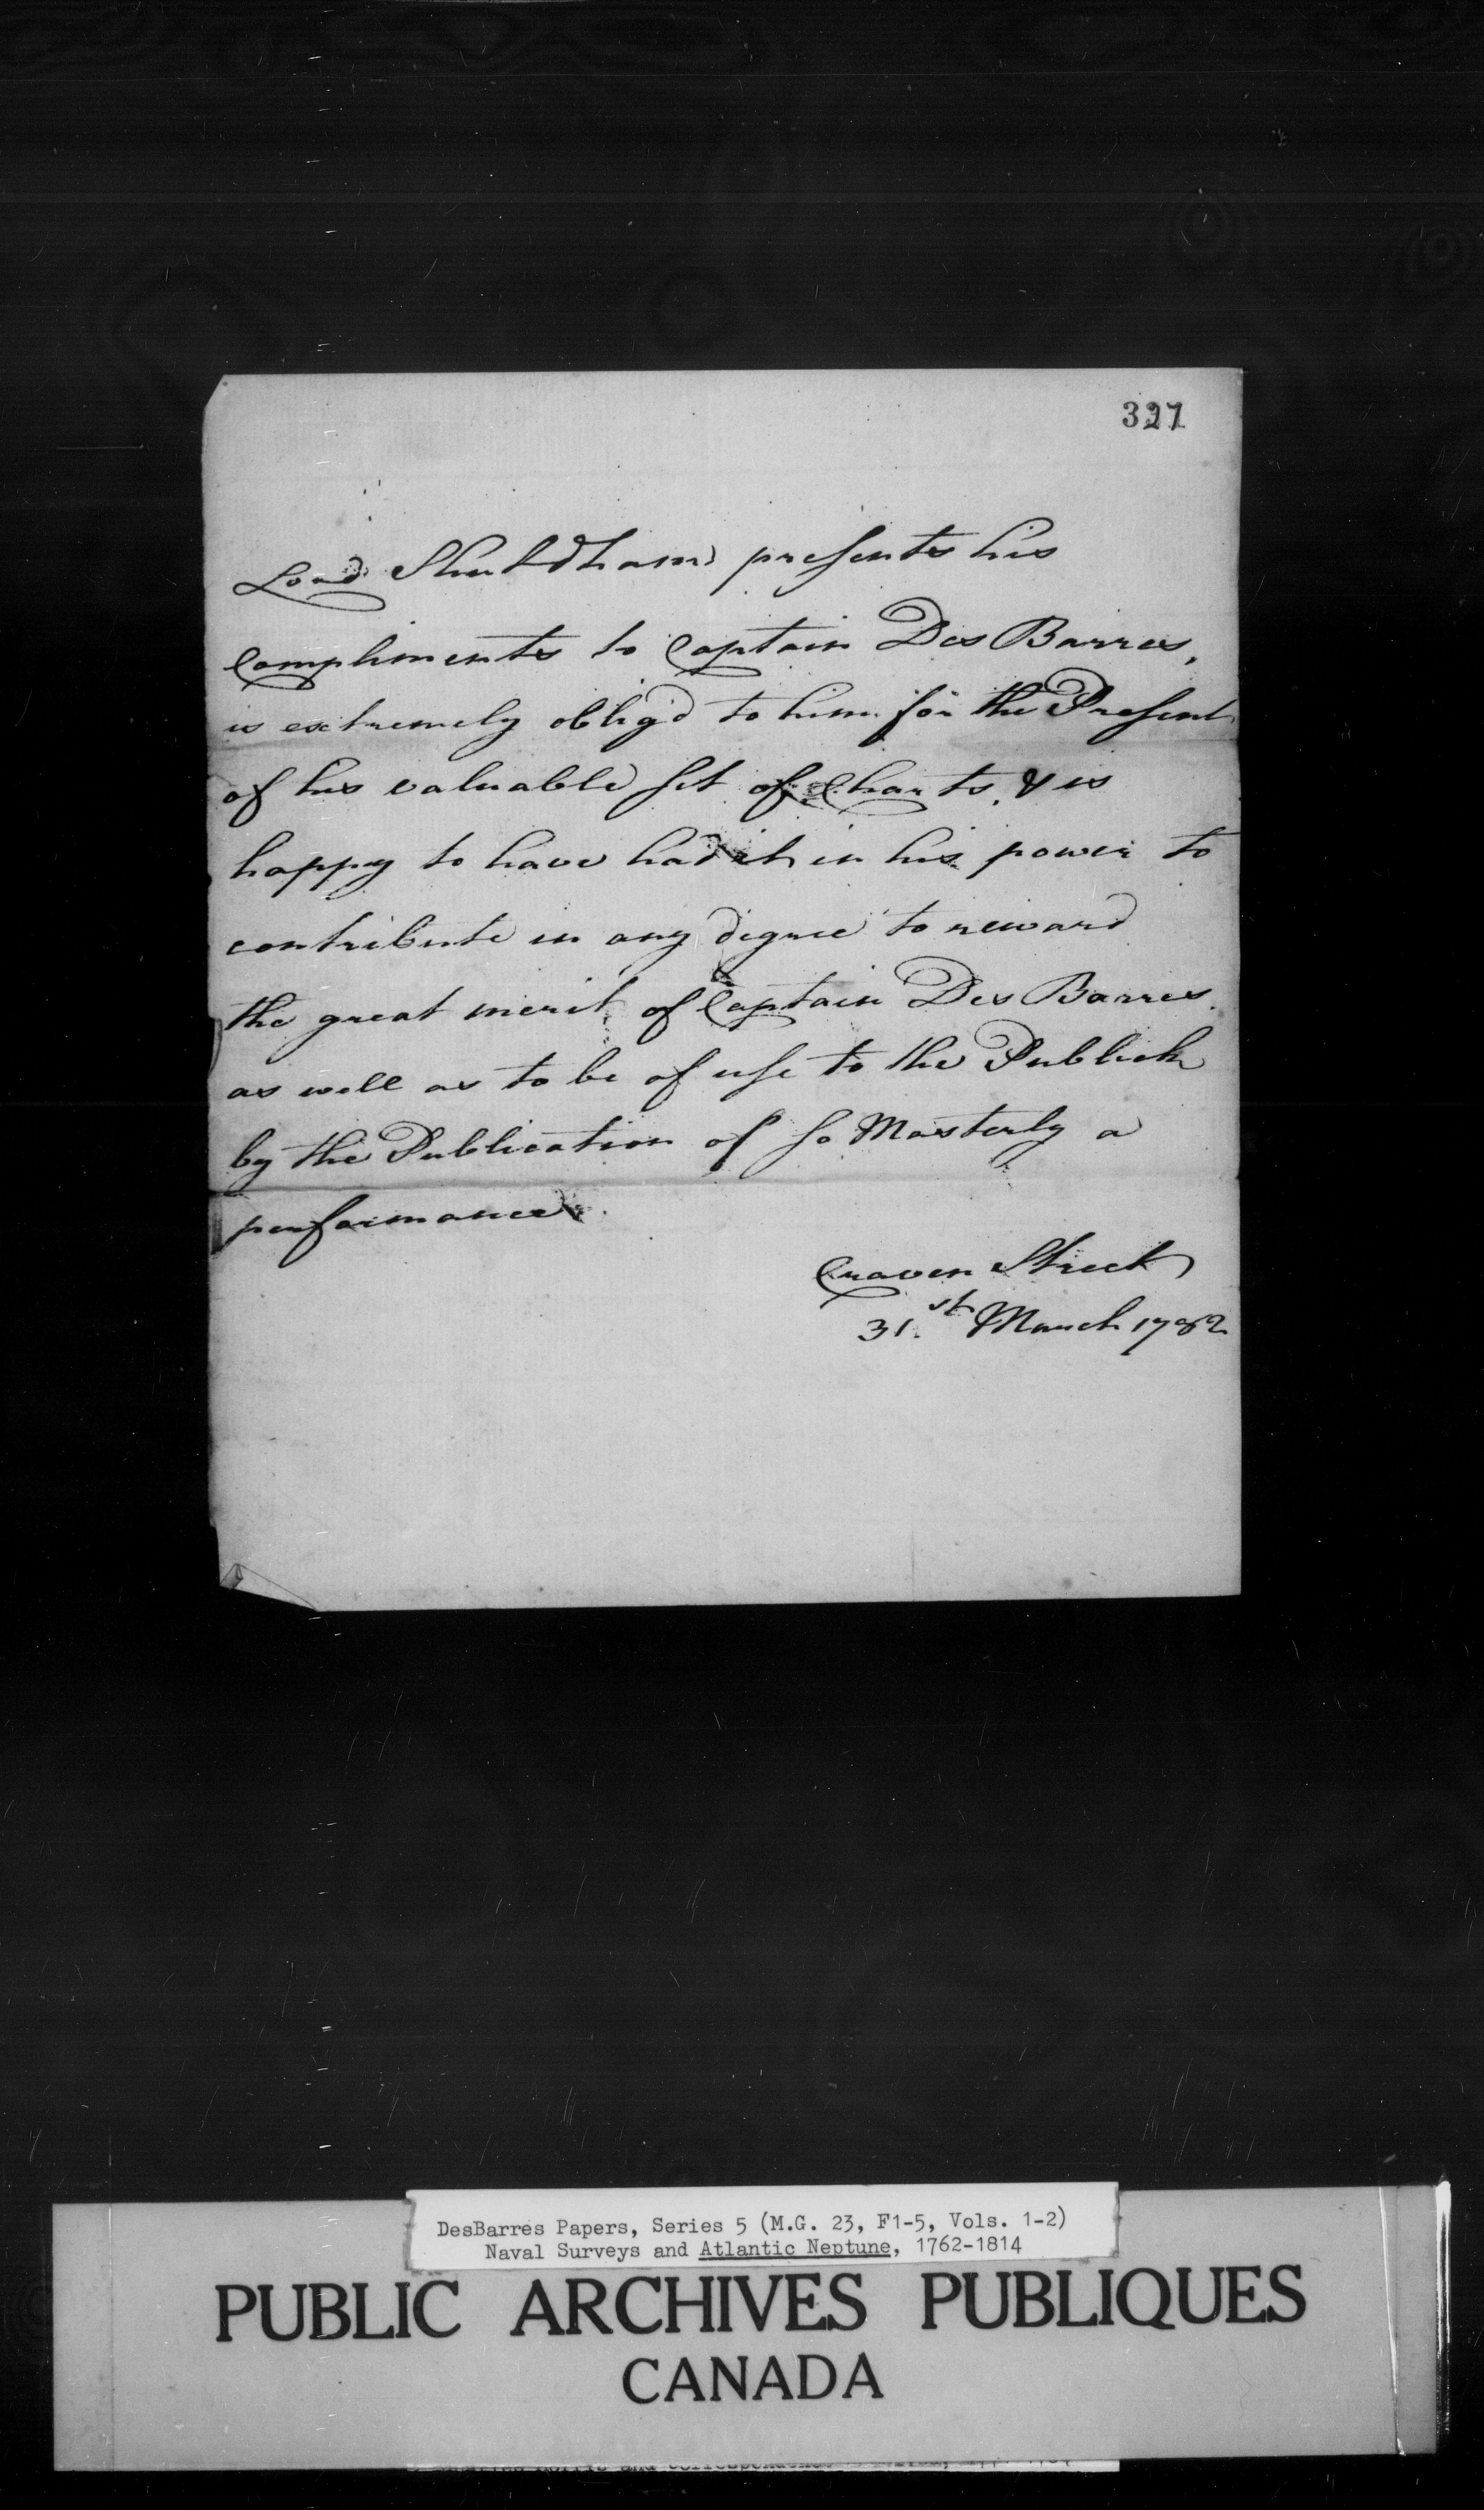 Lord Shuldham presents his
Compliments to Captain Des Barres,
is extremely oblig'd to him for the Present
of his valuable set of Charts, & is
happy to have had it in his power to
contribute in any degree to reward
the great merit of Captain Des Barres.
as well as to be of use to the Publick
by the Publication of so Masterly a
performance.
Craven Street
31.st March 1782
DesBarres Papers, Series 5 (M.G. 23, F1-5, Vols. 1-2)
Naval Surveys and Atlantic Neptune, 1762-1814
PUBLIC ARCHIVES PUBLIQUES
CANADA